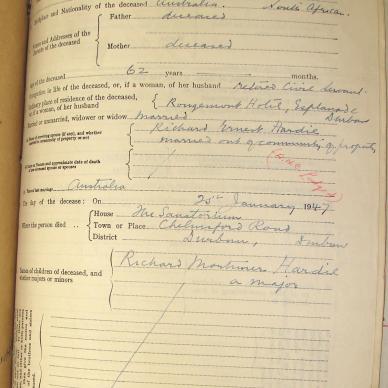 Birthplace and Nationality of the deceased Australia. South African.
Names and Addresses of the Parents of the deceased
Father deceased
Mother deceased
Age of the deceased 62 years months.
Occupation in life of the deceased, or, if a woman, of her husband retired Civil Servant.
Ordinary place of residence of the deceased, or, if a woman, of her husband Rougemont Hotel, Esplanade
Durban
Married or unmarried, widower or widow married
Name of surviving spouse (if any), and whether married in community of property or not
Richard Ernest Hardie
married out of community of property
Name or Names and approximate date of death of pre-deceased spouse or spouses
Place of last marriage Australia
The day of the decease: On 25th January 1947
Where the person died
House The Sanatorium
Town or Place Chelmsford Road
District Durban, Durban
Names of children of deceased, and whether majors or minors
Richard Mortimer Hardie
a major